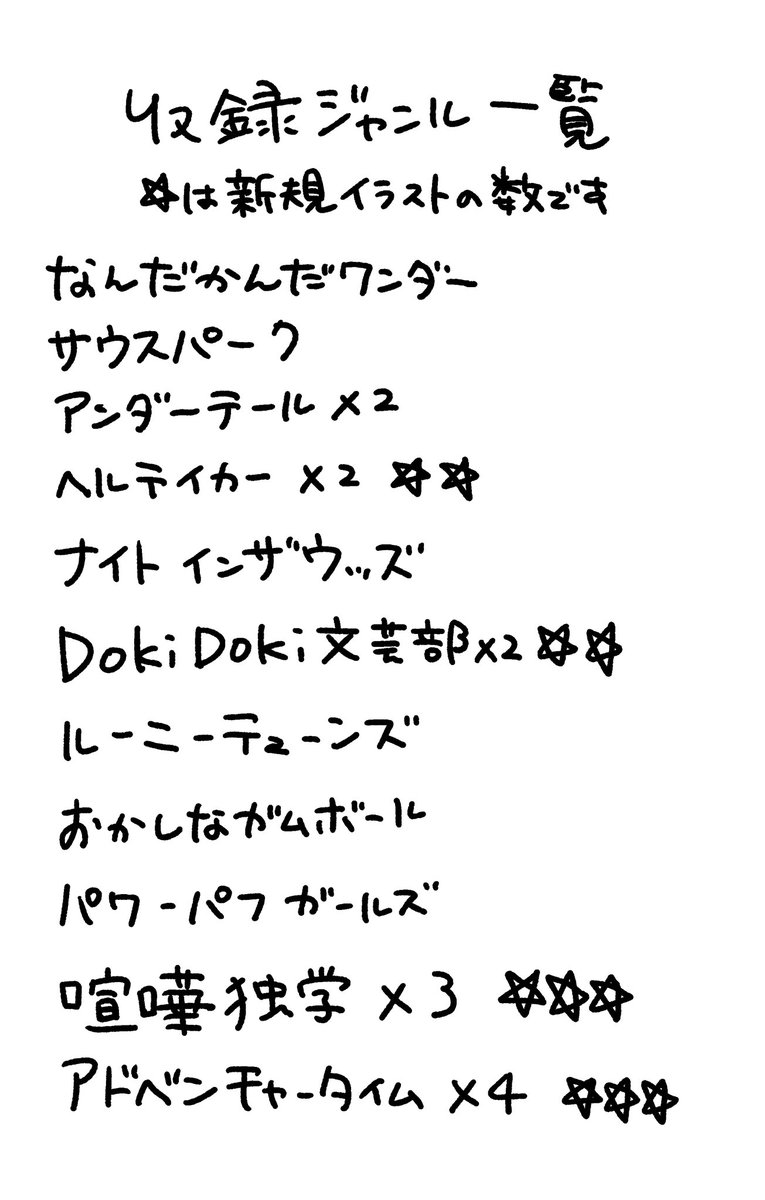 収録ジャンル一覧
☆は新規イラストの数です
なんだかんだワンダー
サウスパーク
アンダーテール×2
ヘルテイカー ×2 ☆☆
ナイト インザウッズ
Doki Doki 文芸部×2 ☆☆
ルーニーテューンズ
おかしなガムボール
パワーパフ ガールズ
喧嘩独学 ×3 ☆☆☆
アドベンチャータイム ×4 ☆☆☆